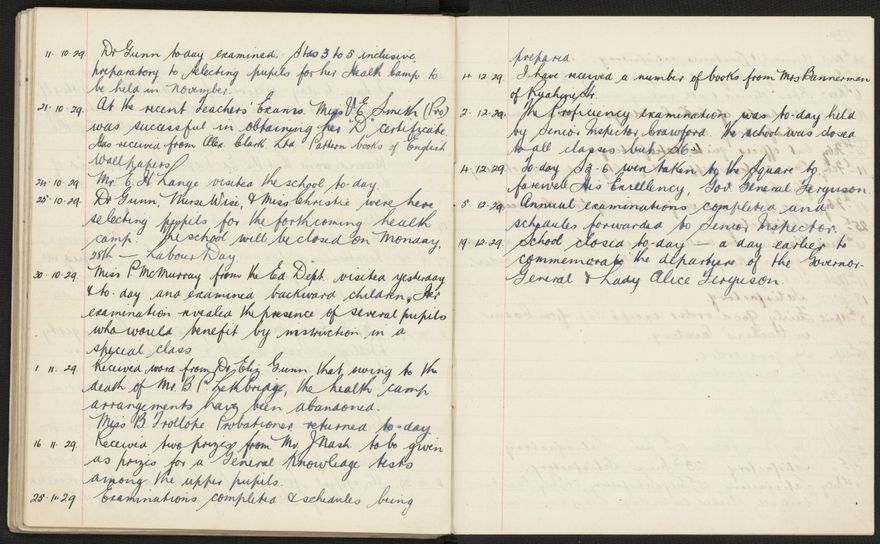 11.10.29 Dr Gunn to-day examined Stds 3 to 5 inclusive,
preparatory to selecting pupils for her Health Camp to
be held in November.
21.10.29. At the recent Teachers' Exams. Miss V. E. Smith (Pro)
was successful in obtaining her "D" certificate.
Has received from Alex. Clark Ltd. Pattern books of English
Wallpapers
24.10.29 Mr. E. H. Lange visited the school to-day.
25.10.29. Dr Gunn, Nurse Wise, & Miss Christie were here
selecting pupils for the forthcoming health
camp. The school will be closed on Monday,
28th — Labour Day.
30.10.29. Miss P. McMurray from the Ed. Dept. visited yesterday
& to-day and examined backward children. Her
examination revealed the presence of several pupils
who would benefit by instruction in a
special class
1.11.29. Received word from Dr Eliz. Gunn that, owing to the
death of Mr. B. P. Lethbridge, the health camp
arrangements have been abandoned.
Miss B. Trollope Probationer returned to-day
16.11.29. Received two prizes from Mr. J Nash to be given
as prizes for a General Knowledge tests
among the upper pupils.
25.11.29 Examinations completed & schedules being
prepared
12.29 I have received a number of books from Mrs Bannerman
of
2.12.29. The Proficiency examination was to-day held
by Senior Inspector Crawford. The school was closed
to all classes but S6.
4.12.29. To-day S3-6 were taken to the Square to
farewell His Excellency, Gov. General Ferguson.
5.12.29. Annual examinations completed and
schedules forwarded to Senior Inspector.
19.12.29. School closed to-day — a day earlier to
commemorate the departure of the Governor-
General & Lady Alice Ferguson.